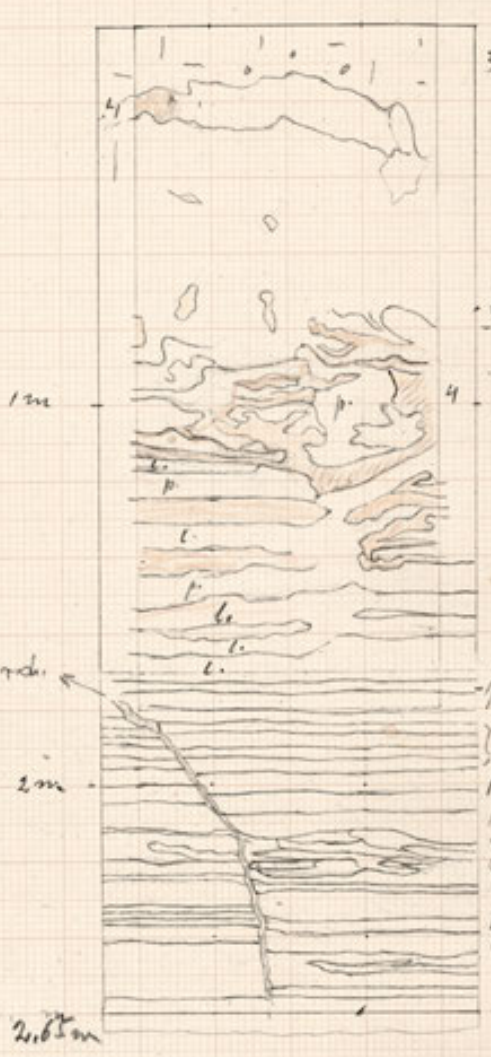 4
1 m
4
p.
l.
p.
l.
p.
l.
l.
l.
2 m
2.65 m